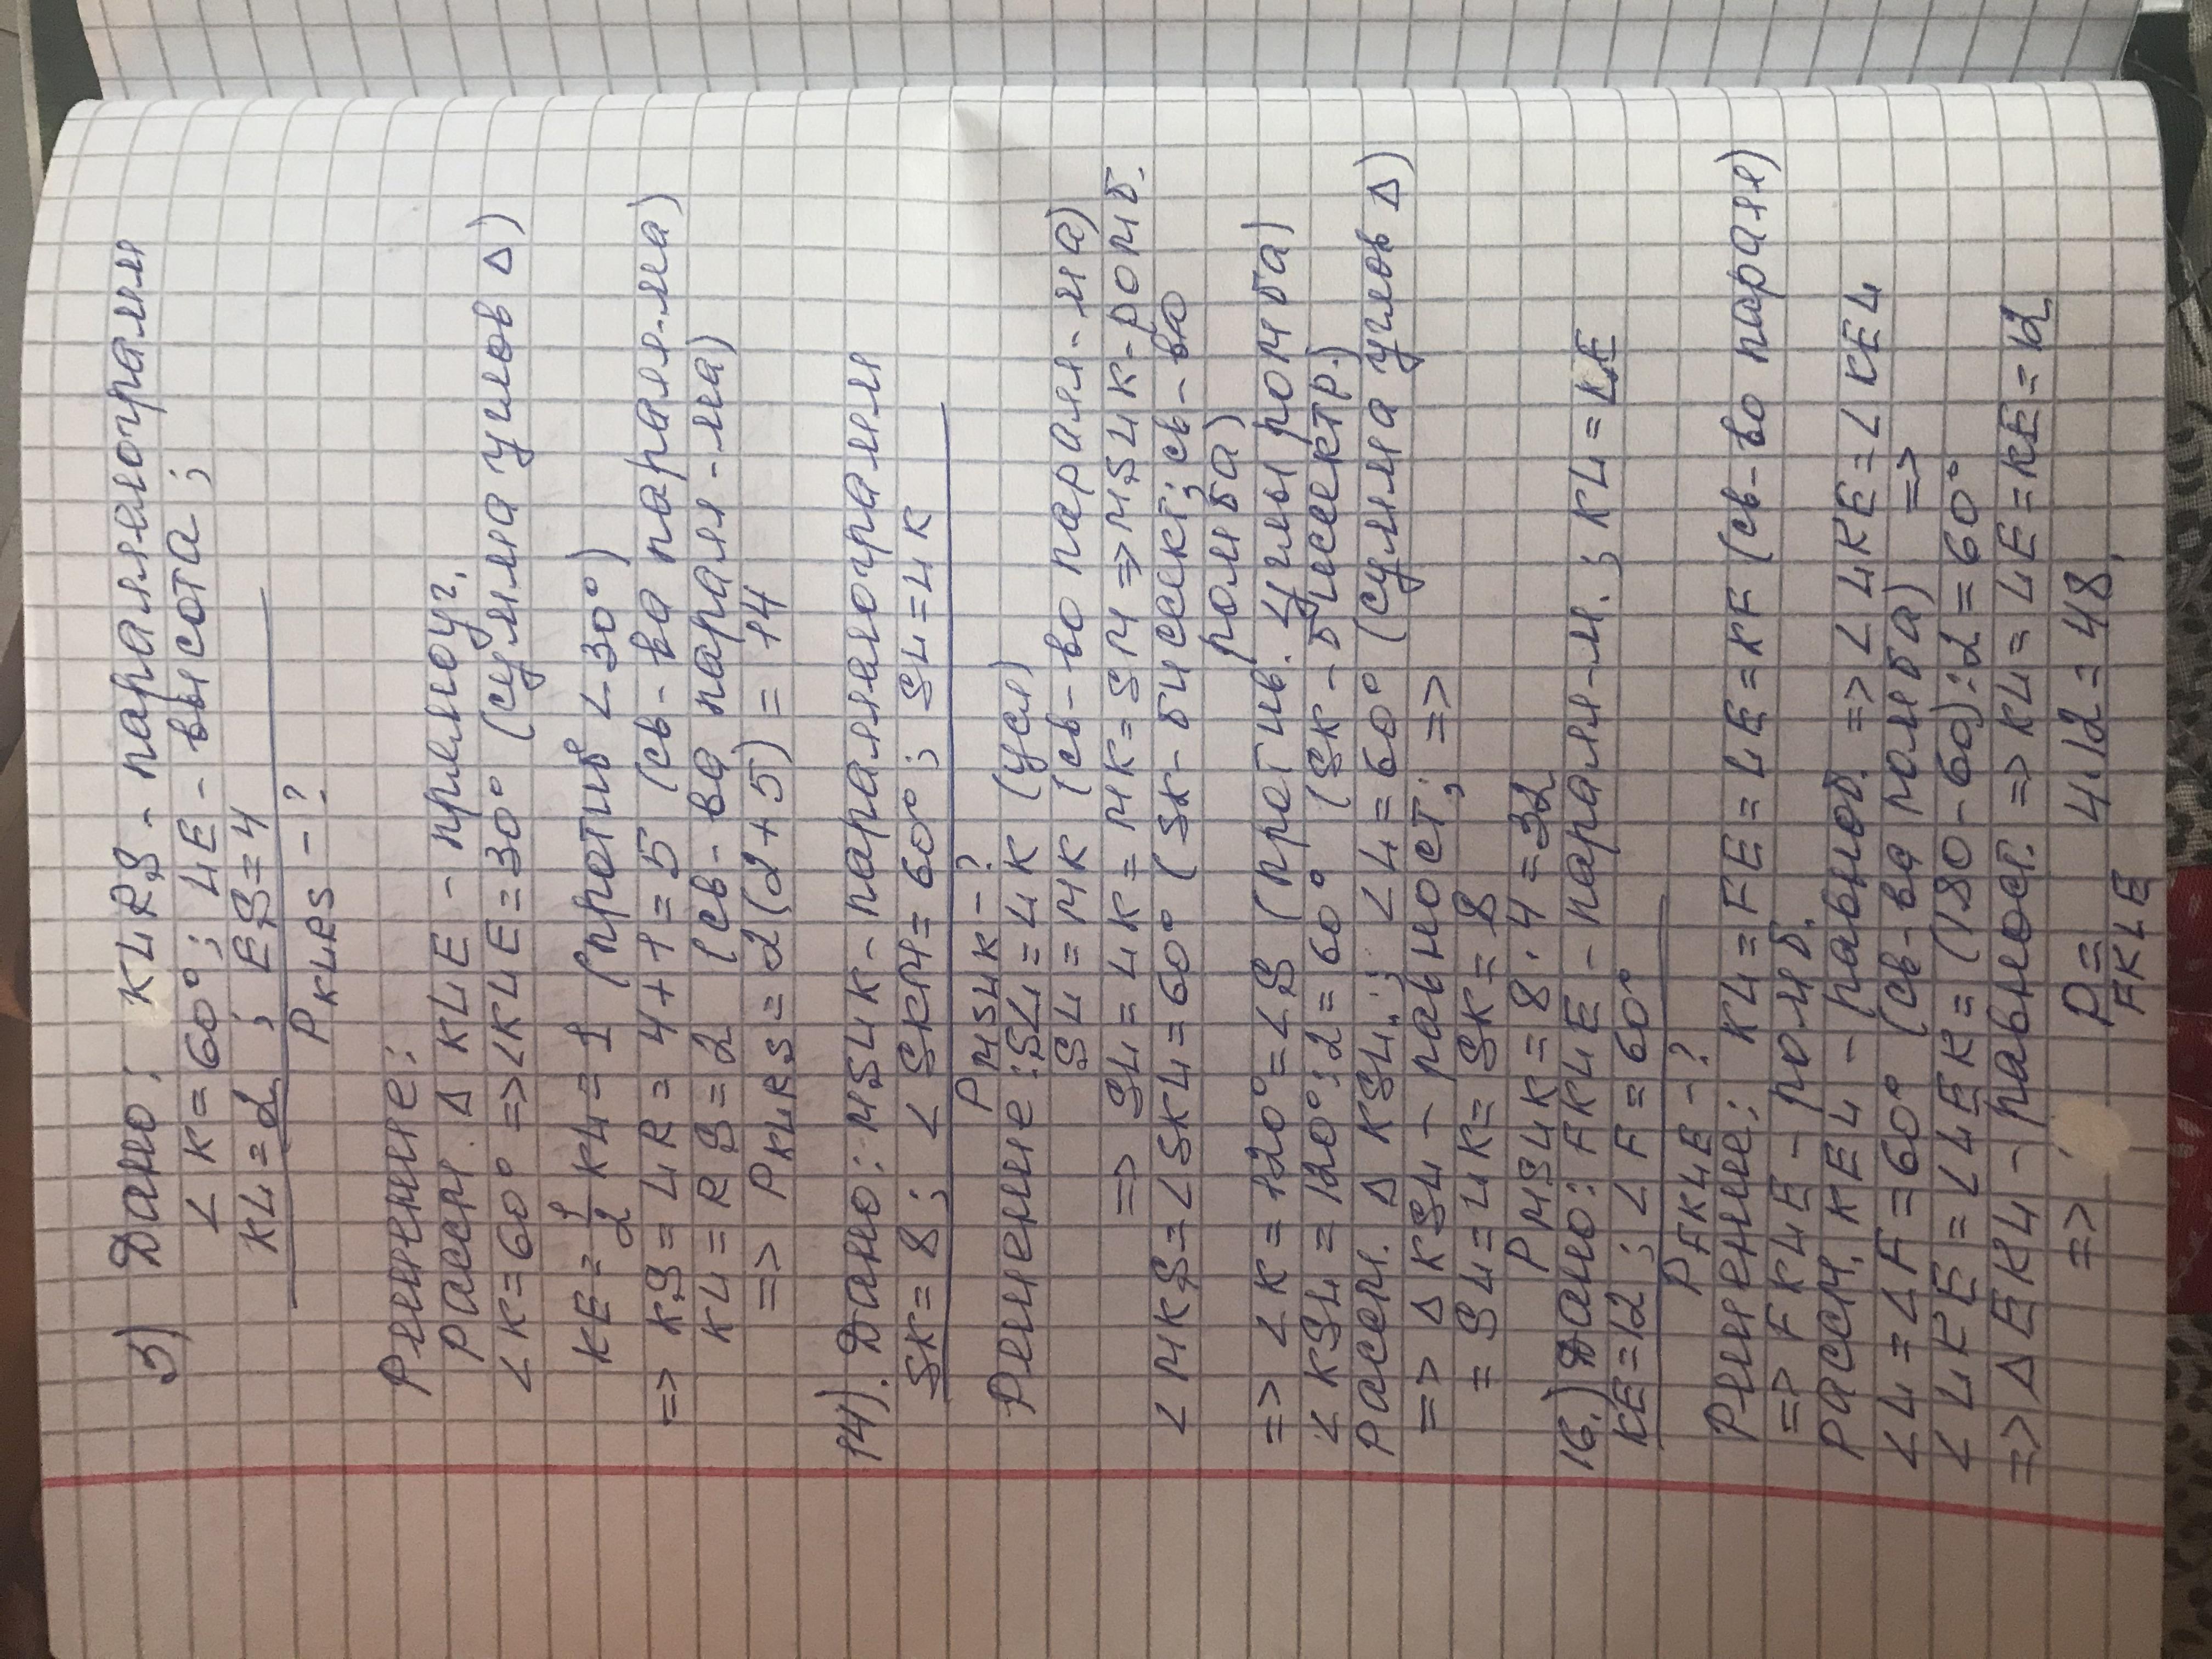 3) Дано: KLRS - параллелограмм
∠K=60°; LE - высота;
KL=2; ES=4
P KLRS - ?
Решение:
Рассм. Δ KLE - прямоуг.
∠K=60° => ∠KLE=30° (сумма углов Δ)
KE=1/2 KL=1 (против ∠30°)
=> KS=LR=4+1=5 (св-ва паралл-ма)
KL=RS=2 (св-ва паралл-ма)
=> P KLRS=2(2+5)=14
14). Дано: MSLK - параллелограмм
SK=8; ∠SKM=60°; SL=LK
P MSLK - ?
Решение: SL=LK (усл)
SL=MK (св-во паралл-ма)
=> SL=LK=MK=SM => MSLK - ромб.
∠MKS=∠SKL=60° (SK-биссект; св-ва
ромба)
=> ∠K=120°=∠S (против. углы ромба)
∠KSL=120°:2=60° (SK-биссектр.)
Рассм. Δ KSL: ∠L=60° (сумма углов Δ)
=> Δ KSL - равност; =>
= SL=LK=SK=8
P MSLK=8·4=32
16.) Дано: FKLE - паралл-м.; KL=LE
KE=12; ∠F=60°
P FKLE - ?
Решение: KL=FE=LE=KF (св-во паралл)
=> FKLE - ромб.
Рассм. KEL - равноб. => ∠LKE=∠KEL
∠L=∠F=60° (св-ва ромба) =>
∠LKE=∠LEK=(180-60):2=60°
=> Δ EKL - равност. => KL=LE=KE=12
=> P FKLE = 4·12=48.